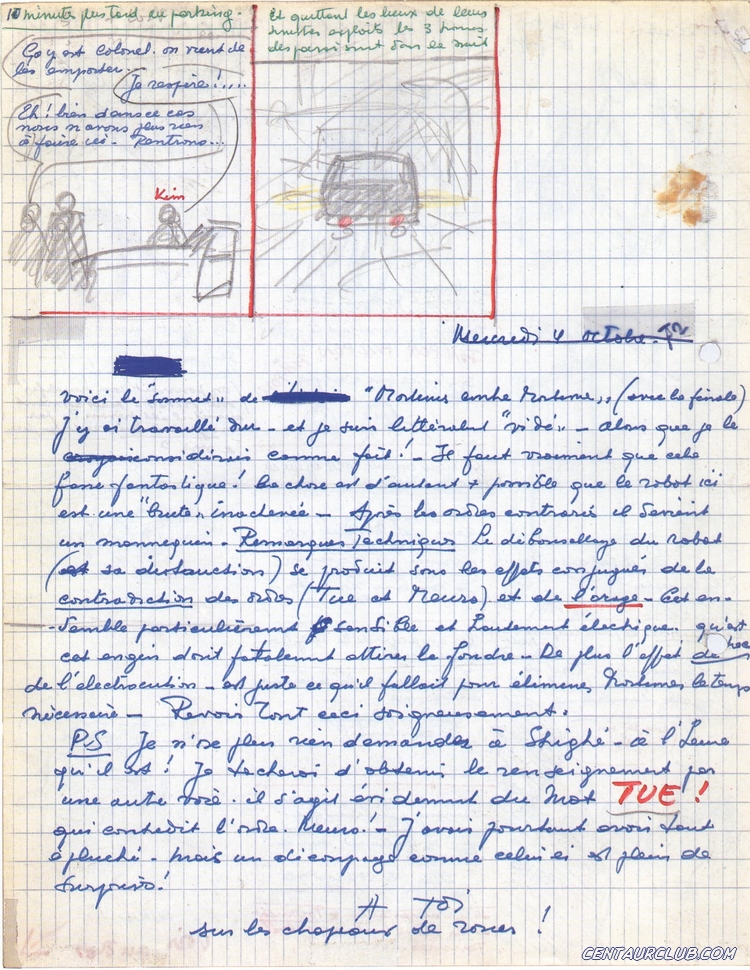 10 minutes plus tard au parking.
Ça y est colonel. on vient de
les emporter..
Je respire!....
Eh! bien dans ce cas
nous n'avons plus rien
à faire ici - Rentrons...
Kim
Et quittant les lieux de leurs
exploits les 3 
disparaissent dans la nuit
Mercredi 4 octobre
voici le "sommet" de "Mortimer contre Mortimer", (avec la finale)
J'y ai travaillé dur - et je suis littéralement "vidé" - alors que je le
considérais comme fait! - Il faut vraiment que cela
fasse fantastique! La chose est d'autant + possible que le robot ici
est une "brute" inachevée - Après les ordres contrariés il devient
un mannequin. Remarques Techniques Le déboussollage du robot
(et sa destruction) se produit sous les effets conjugués de la
contradiction des ordres (Tue et Meurs) et de l'orage - Cet en-
-semble particulièrement sensible et hautement électrique.
cet engin doit fatalement attirer la foudre - De plus l'effet de choc
de l'électrocution - est juste ce qu'il fallait pour éliminer Mortimer le temps
nécessaire - Revois tout ceci soigneusement.
PS Je n'ose plus rien demander à - à l'
qu'il est! Je tacherai d'obtenir le renseignement par
une autre voie. il s'agit évidemment du mot TUE!
qui contredit l'ordre. Meurs! - J'avais pourtant avoir tout
épluché - mais un découpage comme celui ci est plein de
surprises!
A TOI
sur les chapeaux de roues!
CENTAURCLUB.COM